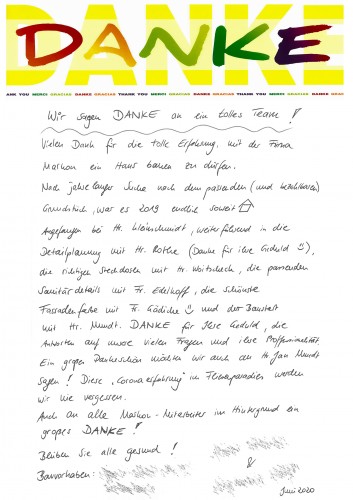 DANKE
ANK YOU MERCI GRACIAS DANKE GRACIAS THANK YOU MERCI GRACIAS DANKE GRACIAS THANK YOU MERCI GRACIAS DANKE GRAC
Wir sagen DANKE an ein tolles Team!
Vielen Dank für die tolle Erfahrung, mit der Firma
Markon ein Haus bauen zu dürfen.
Nach jahrelanger Suche nach dem passenden (und bezahlbaren)
Grundstück, war es 2019 endlich soweit
Angefangen bei Hr. Kleinschmidt, weiterführend in die
Detailplanung mit Hr. Rothe (Danke für ihre Geduld ☺),
die richtigen Steckdosen mit Hr. Woitscheck, die passenden
Sanitärdetails mit Fr. Edelhoff, die schönste
Fassadenfarbe mit Fr. Gädicke ☺ und der Baustart
mit Hr. Mundt. DANKE für Ihre Geduld, die
Antworten auf unsere vielen Fragen und ihre Proffessionalität.
Ein großes Dankeschön möchten wir auch an Hr. Jan Mundt
sagen! Diese „Coronaerfahrung" im Fliesenparadies werden
wir nie vergessen.
Auch an alle Markon-Mitarbeiter im Hintergrund ein
großes DANKE!
Bleiben Sie alle gesund!
Bauvorhaben: &
Juni 2020